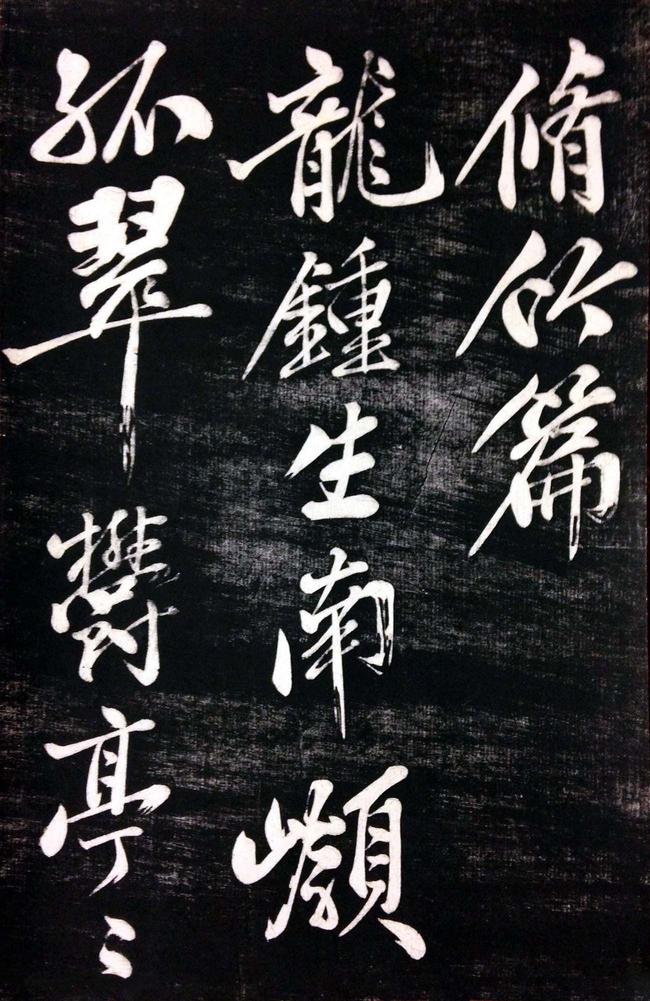 脩竹篇
龍鍾生南
孤翠鬱亭〻